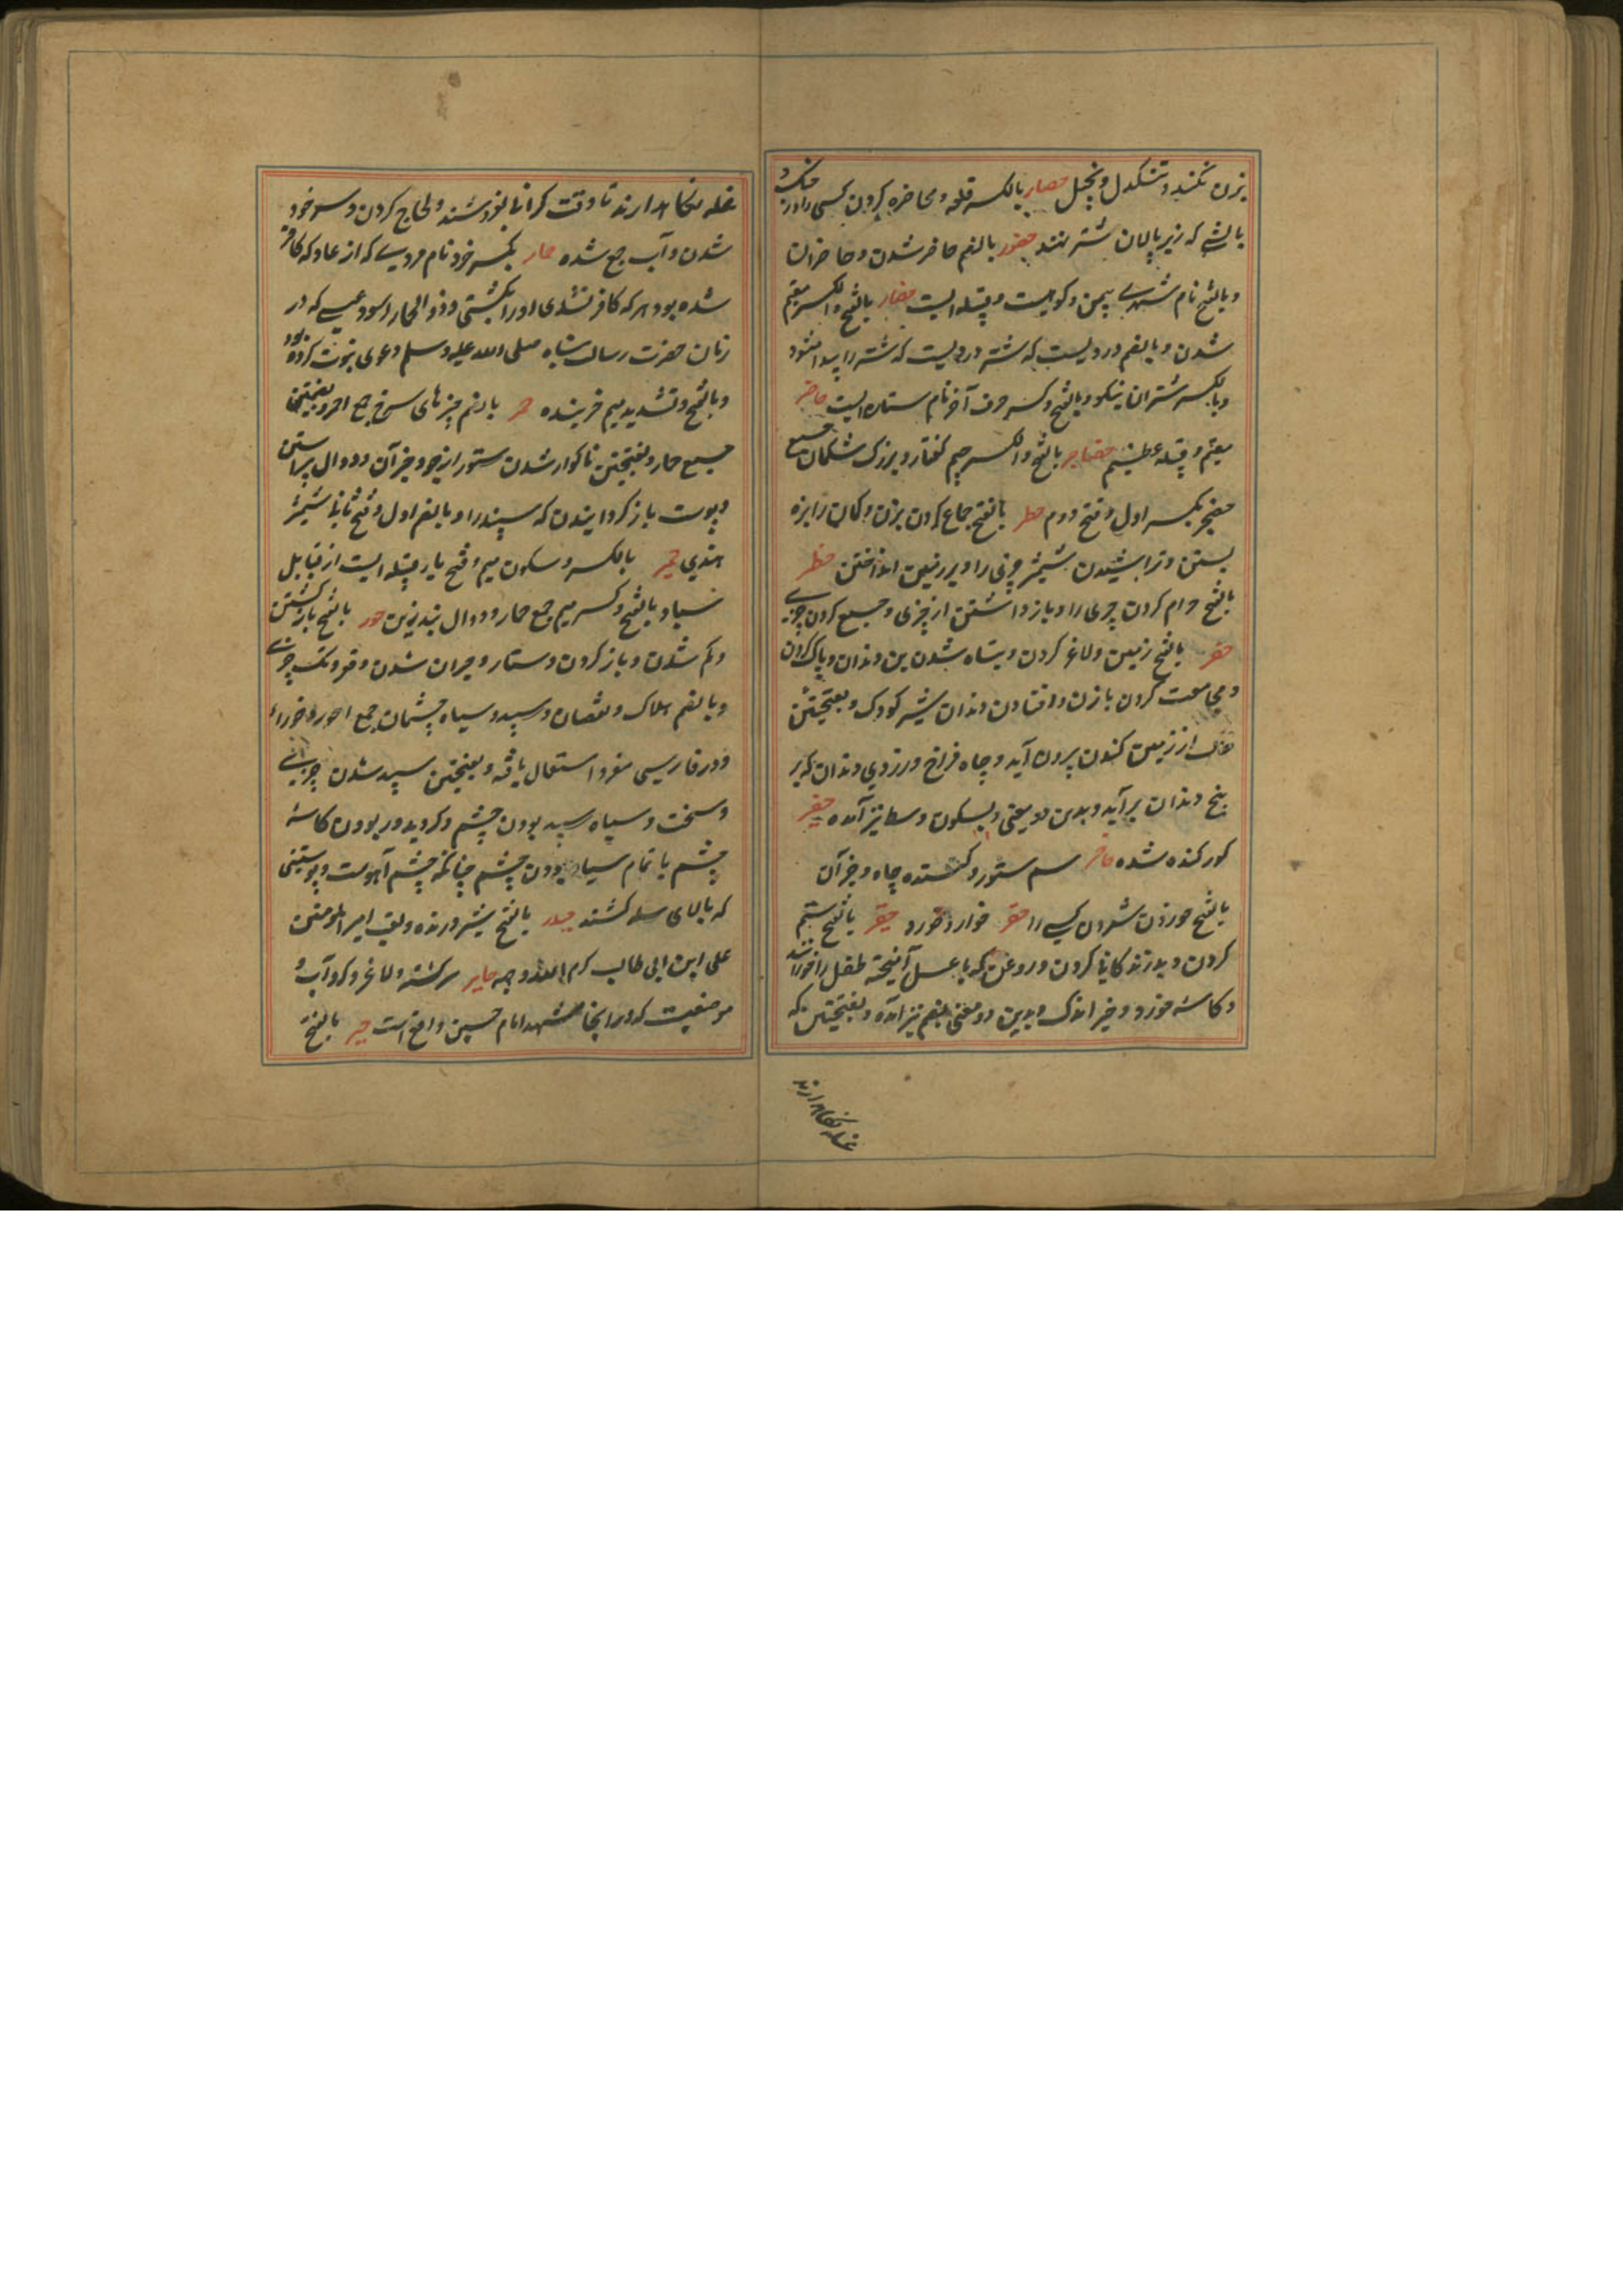 بزن نکند و تنکدل و بخیل حصار بالکسر قلعه و محاضره کردن کسی را در جنک و
بالشی که زیر پالان شتر نهند حضور بالضم حاضر شدن و حاضران
و بالفتح نام شهری بیمن و کوهیست و قبیله ایست حضار بالفتح و الکسر مقیم
شدن و بالضم دردیست که شتر در دیست که شتر را پیدا شود
و بالکسر شتران نیکو و بالفتح و کسر حرف آخر نام ستاره ایست حاضر
مقیم و قبیله عظیم حضاجر بالفتح و الکسر جیم کفتار و بزرک شکمان جمع
حضجر بکسر اول و فتح دوم حطر بالفتح جماع کردن بزن و کمان را بزه
بستن و تراشیدن شمشیر چیزی را و بر زمین انداختن حظر
بالفتح حرام کردن چیزی را و باز داشتن از چیزی و جمع کردن چیزی
حفر بالفتح زمین و لاغر کردن و تباه شدن بن دندان و پاک کردن
و مجامعت کردن بازن و افتادن دندان شیر کودک و بفتحتین
خاک از زمین کندن برون آید و چاه فراخ و زردی دندان که بر
بیخ دندان بر آید و بدین دو معنی بسکون وسط نیز آمده حفیر
کور کنده شده حافر سم ستور و کننده چاه و جز آن
بالفتح خورد شمردن کسی را حقر خوار و خورد حقیر بالفتح ستم
کردن و بد زندکانی کردن و روغن که با عسل آمیخته طفل را خورانند
و کاسه خورد و چیز اندک و بدین دو معنی بضم نیز آمده و بفتحتین که
غله نکاهدارند
غله نکاهدارند تا وقت کرانی بفروشند و لجاج کردن و سر خود
شدن و آب جمع شده حمار بکسر خر و نام مردیست که از عاد که کافر
شده بود هر که کافر نشدی اورا بکشتی و ذو الحمار اسود عیسی که در
زمان حضرت رسالت پناه صلی الله علیه وسلم دعوی نبوت کرده بود
و بالفتح و تشدید میم خربنده حمر بالضم چیزهای سرخ جمع احمر و بضمتین
جمع حمار و بفتحتین ناکوار شدن ستور از جو و جز آن و دوال پیراستن
و پوست باز کردانیدن کوسپند را و بالضم اول و فتح ثانی تمر
هندی حمیر بالکسر و سکون میم و فتح یا قبیله ایست از قبایل
سبا و بالفتح و کسر میم جمع حمار و دوال بند زین حور بالفتح باز کشتن
و کم شدن و باز کردن دستار و حیران شدن و قعر و تک چیزی
و بالضم هلاک و نقصان و سپید و سیاه چشمان جمع احور و حوراء
و در فارسی مفرد استعمال یافته و بفتحتین سپید شدن چیزی
و سخت و سیاه سپید بودن چشم و کرد و بدور بودن کاسه
چشم یا تمام سیاه بودن چشم چنانکه چشم آهوست و پوستینی
که بالای سله کشند حیدر بالفتح شیر درنده و لقب امیر المومنین
علی ابن ابی طالب کرم الله وجهه حایر سرکشته و لاغر و کرد آب و
موضعیت که در انجا مشهد امام حسین واقع است حیر بالفتح